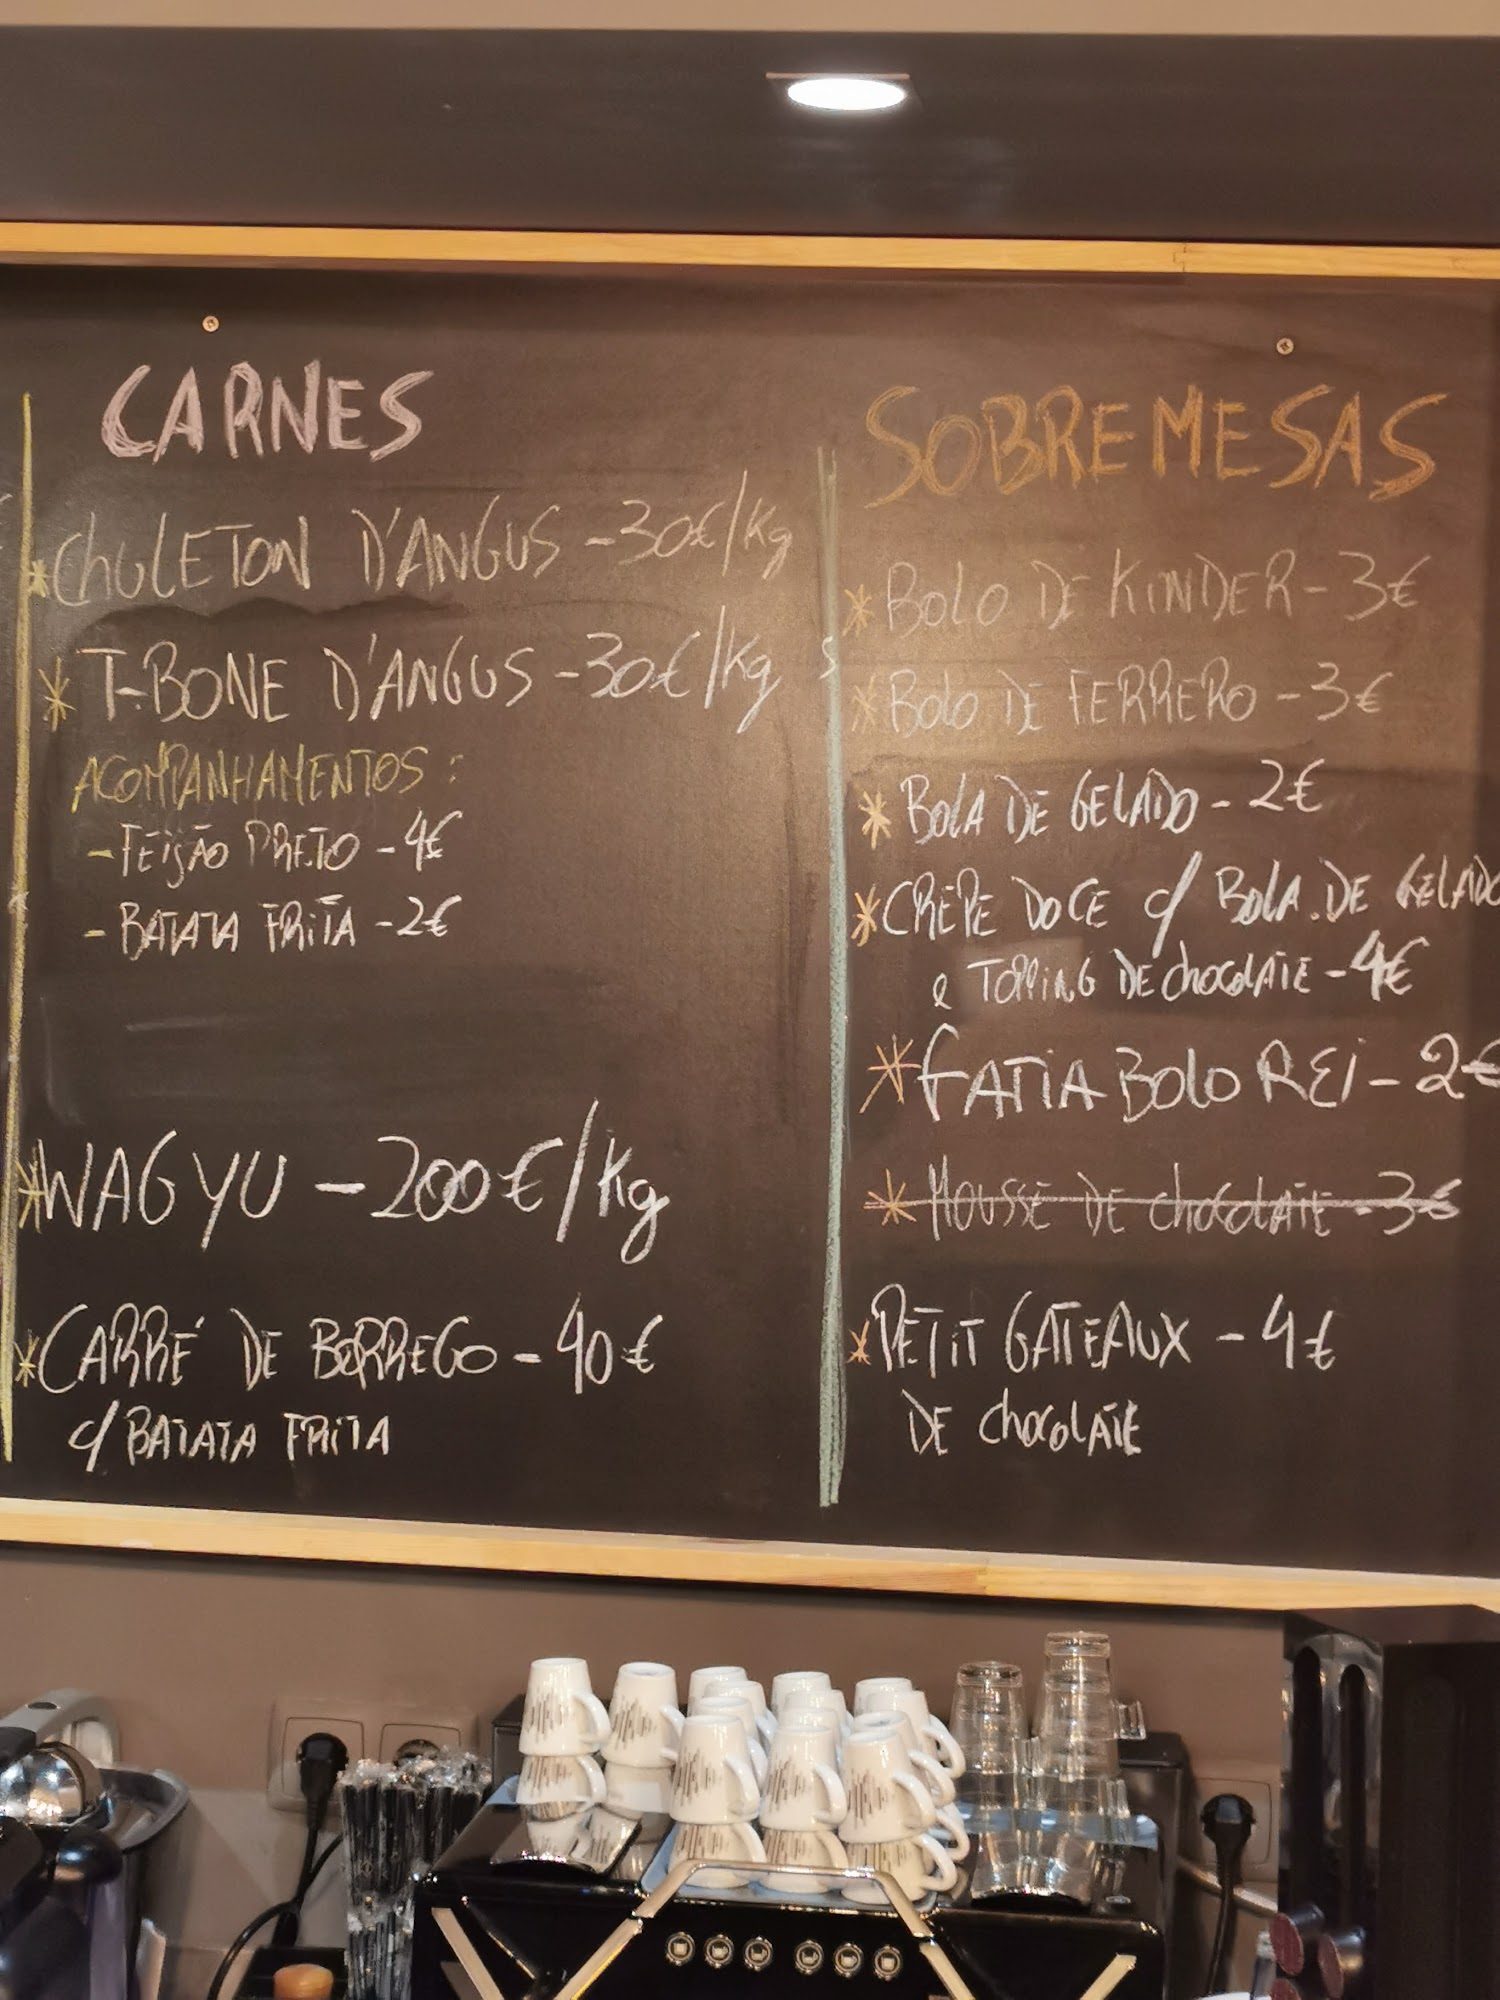 CARNES
*CHULETON D'ANGUS -30€/kg
* T-BONE D'ANGUS -30€/kg
ACOMPANHAMENTOS:
-FEIJÃO PRETO -4€
- BATATA FRITA -2€
*WAGYU -200€/kg
*CARRÉ DE BORREGO - 40€
c/BATATA FRITA
SOBREMESAS
*BOLO DE KINDER-3€
*BOLO DE FERRERO -3€
*BOLA DE GELADO - 2€
*CREPE DOCE c/ BOLA.DE GELADO
e TOPPING DE chocolATE -4€
*FATIA BOLO REI - 2€
* MOUSSE DE chocolATE -3€
*PETIT GATEAUX - 4€
DE chocolATE